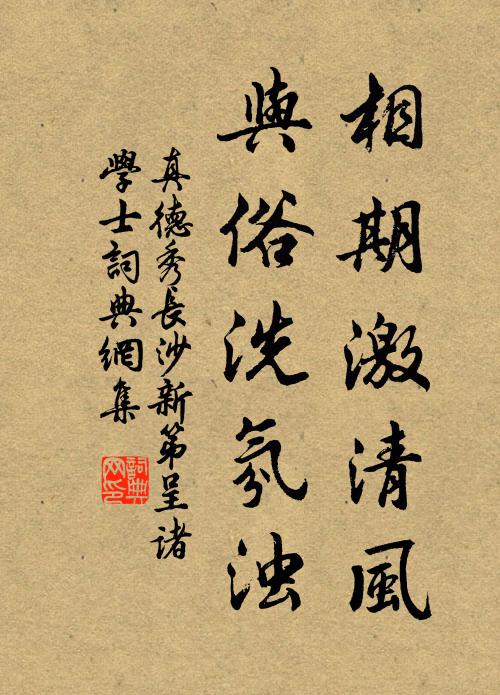 相期激清風
與俗洗氛浊
真德秀長沙新第呈諸
學士詞典網集
詞典
网印